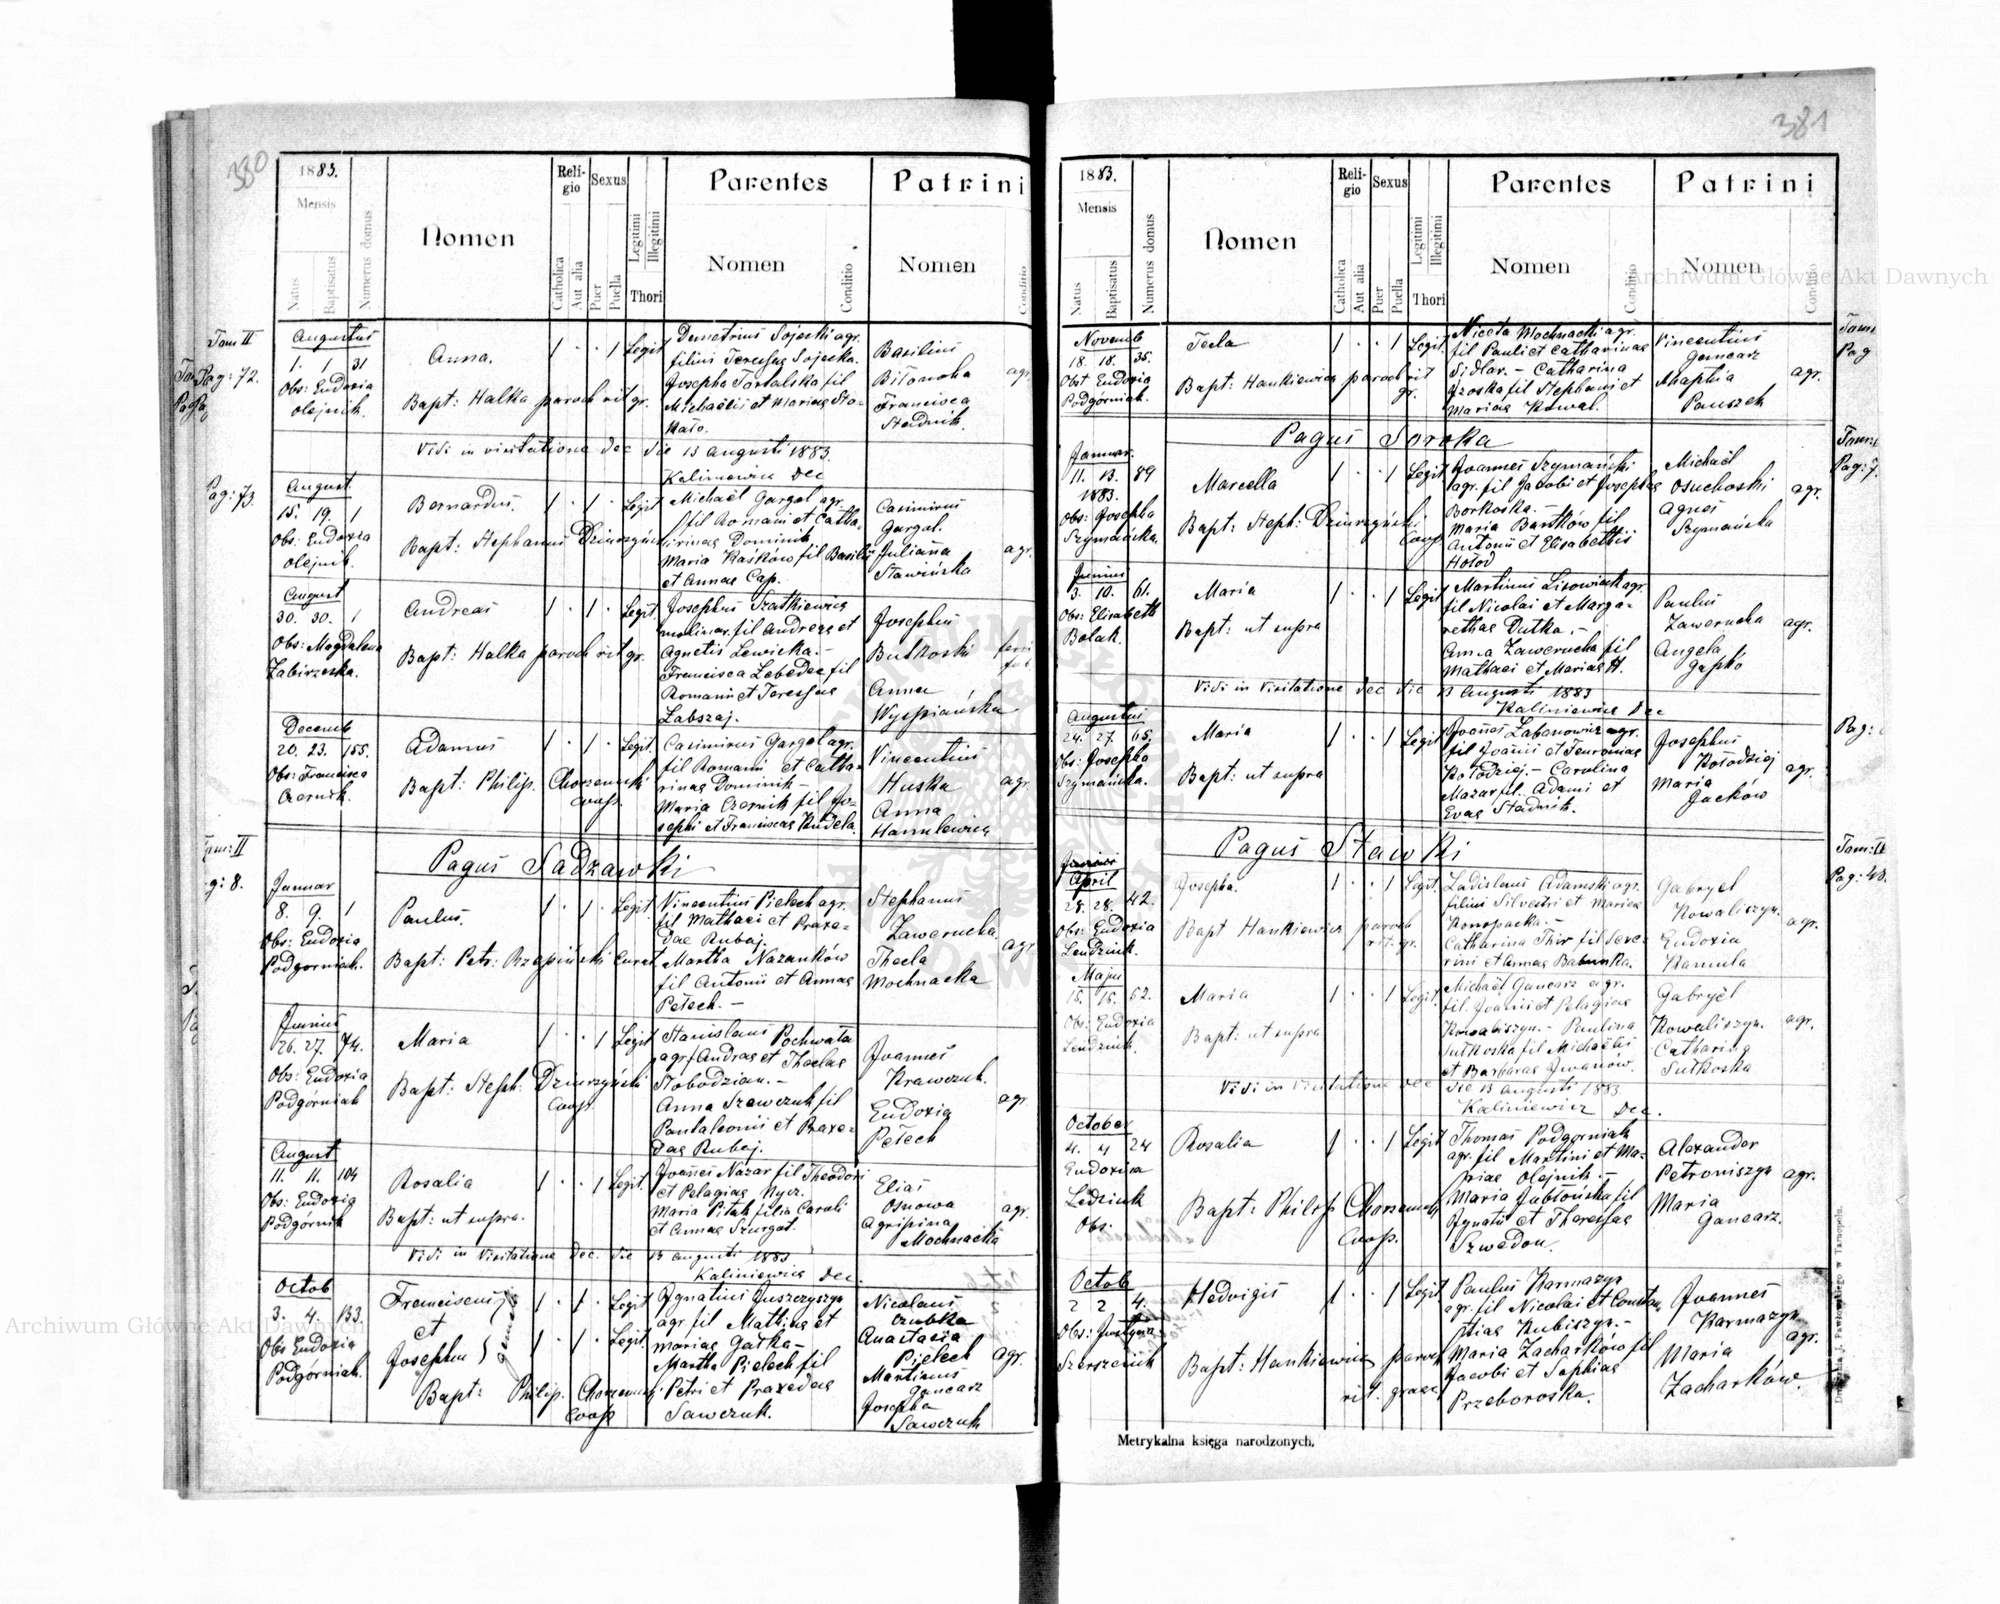 380
1883.
Mensis
Natus
Baptisatus
Numerus domus
Nomen
Religio
Catholica
Aut alia
Sexus
Puer
Puella
Legitimi
Illegitimi
Thori
Parentes
Nomen
Conditio
Patrini
Nomen
Conditio
Tom II
Pag: 72.
Augustus
1. 1 31
Obs: Eudoxia
Olejnik.
Anna.
1 . . 1 Legit
Bapt: Halka paroch rit gr.
Demetrius Sojecki agr.
filius Teressae Sojecka.
Josepha Tortalska fil
Michaelis et Mariae
Basilius
Francisca
Stadnik.
agr.
Vidi in visitatione dec die 13 Augusti 1883.
Kaliniewicz Dec
Pag: 73.
August
15. 19. 1
Obs: Eudoxia
Olejnik.
Bernardus.
1 . 1 . Legit
Bapt: Stephanus Dziurzyński
Michaël Gargol agr.
fil Romani et Catha
rinae Dominik
Maria Kaśków fil Basilii
et Annae Cap.
Casimirus
Gargol.
Juliana
Stawińska
agr.
August
30. 30. 1
Obs: Magdalena
Zabirzeska.
Andreas
1 . 1 . Legit
Bapt: Halka paroch rit gr.
Josephus Szatkiewicz
molinar. fil Andreae et
Agnetis Lewicka.-
Francisca Lebedec fil
Romani et Teressae
Labszaj.
Josephus
Butkoski
Anna
Wyspiańska
Decemb
20. 23. 155.
Obs: Francisca
Czernik.
Adamus
1 . 1 . Legit.
Bapt: Philip. Chorzemski
coop.
Casimirus Gargol agr.
fil Romani et Catha-
rinae Dominik -
Maria Czernik fil Jo-
sephi et Franciscae Kudela.
Vincentius
Huska
Anna
Hamulewicz
agr.
Tom: II
g: 8.
Pagus Sadzawki
Januar
8. 9. 1
Obs: Eudoxia
Podgorniak.
Paulus.
1 . 1 . Legit
Bapt: Petr: Rzepiński Curat
Vincentius Pielech agr.
fil Mathaei et Praxe-
dae Rubaj.
Martha Nazanków
fil Antonii et Annae
Petech. -
Stephanus
Zawerucha
Thecla
Mochnacka
agr.
Junius
26. 27. 74.
Obs: Eudoxia
Podgórniak
Maria
1 . . 1 Legit
Bapt: Steph: Dziurzyński
Coop.
Stanislaus Pochwata
agr f Andrae et Theclae
Słobodzian. -
Anna Szewczuk fil
Pantaleonii et Praxe-
dae Rubaj.
Joannes
Krawczuk.
Eudoxia
Petech
agr
August
11. 11. 104
Obs: Eudoxia
Podgórnik
Rosalia
1 . . 1 Legit.
Bapt: ut supra.
Joannes Nazar fil Theodori
et Pelagiae Nycz.
Maria Pitak filia Caroli
et Annae Szurgot.
Elias
Osnowa
Agripina
Mochnacka
agr.
Vidi in Visitatione Dec. die 13 Augusti 1883
Kaliniewicz Dec.
Octob
3. 4. 133.
Obs Eudoxia
Podgórniak.
Franciscus
et
Josephus
gemelli
1 . 1 . Legit
1 . 1 . Legit
Bapt: Philip. Chorzemski
Coop
Ignatius Juszczyszyn
agr fil Mathiae et
Mariae Gatka -
Martha Pielech fil
Petri et Praxedae
Sawczuk.
Nicolaus
Czubka
Anastasia
Pielech
Martinus
Gancarz
Josepha
Sawczuk
agr.
381
1883.
Mensis
Natus
Baptisatus
Numerus domus
Nomen
Religio
Catholica
Aut alia
Sexus
Puer
Puella
Legitimi
Illegitimi
Thori
Parentes
Nomen
Conditio
Patrini
Nomen
Conditio
Novemb
18. 18. 35.
Obst Eudoxia
Podgórniak.
Tecla
1 . . 1 Legit.
Bapt: Hankiewicz paroch rit
gr.
Niceta Mochnacki agr.
fil Pauli et Catharinae
Sidlar. - Catharina
fil Stephani et
Mariae Kowal.
Vincentius
Gancarz
Ahaphia
Pauszek
agr.
Pagus Soroka
Januar.
11. 13. 89
1883.
Obs: Josepha
Szymańska.
Marcella
1 . . 1 Legit
Bapt: Steph: Dziurzyński
Coop
Joannes Szymański
agr. fil Jacobi et Josephae
Borkoska. -
Maria Bartków fil
Antonii et Elisabethis
Hołod
Michaël
Osuchoski
Agnes
Szymańska
agr.
Junius
3. 10. 61.
Obs: Elisabeth
Bolak.
Maria
1 . . 1 Legit
Bapt: ut supra
Martinus Lisowiak agr.
fil Nicolai et Marga-
rethae Dutka.-
Anna Zawerucha fil
Mathaei et Mariae H.
Paulus
Zawerucha
Angela
Gapko
agr.
Vidi in Visitatione dec die 13 Augusti 1883
Kaliniewicz Dec
Augustus
24. 27. 65.
Obs: Josepha
Szymańska.
Maria
1 . . 1 Legit
Bapt: ut supra
Joannes Labanowicz agr.
fil Joannis et Feuroniae
Kołodziej. - Carolina
Mazur fil. Adami et
Evae Stadnik.
Josephus
Kołodziej
Maria
Jacków
agr.
Pagus Stawki
April
28. 28. 42.
Obs: Eudoxia
Lendziuk.
Josepha.
1 . . 1 Legit.
Bapt Hankiewicz paroch
rit. gr.
Ladislaus Adamski agr.
filius Silvestri et Mariae
Konopacka.-
Catharina Thir fil Seve-
rini et Annae Babunka.
Gabryel
Kowaliszyn.
Eudoxia
Kamula
agr.
Majus
15. 16. 52.
Obs: Eudoxia
Lendziuk.
Maria
1 . . 1 Legit.
Bapt: ut supra
Michaël Gancarz agr.
fil. Joannis et Pelagiae
Kowaliszyn.- Paulina
Sutkoska fil Michaëlis
et Barbarae Iwanów.
Gabryël
Kowaliszyn.
Catharina
Sutkoska
agr.
Vidi in Visitatione dec die 13 Augusti 1883.
Kaliniewicz Dec.
October
4. 4 24
Eudoxia
Ledziuk
Obs:
Rosalia
1 . . 1 Legit
Bapt: Philip Chorzemski
Coop.
Thomas Podgorniak
agr. fil Martini et Ma-
riae Olejnik.-
Maria Jabłońska fil
Ignatii et Theressae
Szwedon.
Alexander
Petroniszyn
Maria
Gancarz.
agr.
Octob
2 2 4.
Obs: Justyna
Szerszeniuk
Hedvigis
1 . . 1 Legit.
Bapt: Hankiewicz paroch
rit. graec
Paulus Karmazyn
agr. fil Nicolai et Constan
tiae Kubiszyn.-
Maria Zacharków fil
Jacobi et Sophiae
Przeboroska.
Joannes
Karmazyn
Maria
Zacharków.
agr.
Tom: II
Pag: 48.
Metrykalna księga narodzonych.
Drukarnia J. Pawłowskiego w Tarnopolu.
Archiwum Główne Akt Dawnych
Archiwum Główne Akt Dawnych